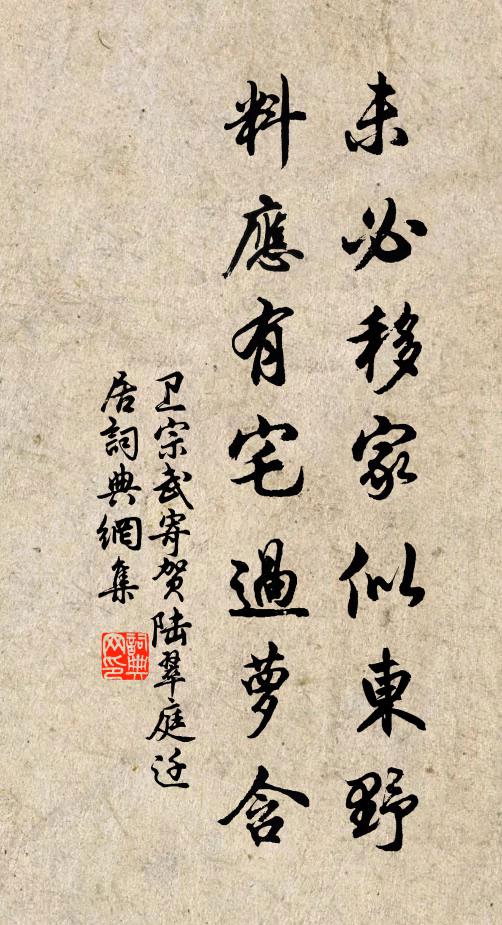 未必移家似東野
料應有宅過夢含
卫宗武寄贺陆翠庭迁
居詞典網集
詞典網印